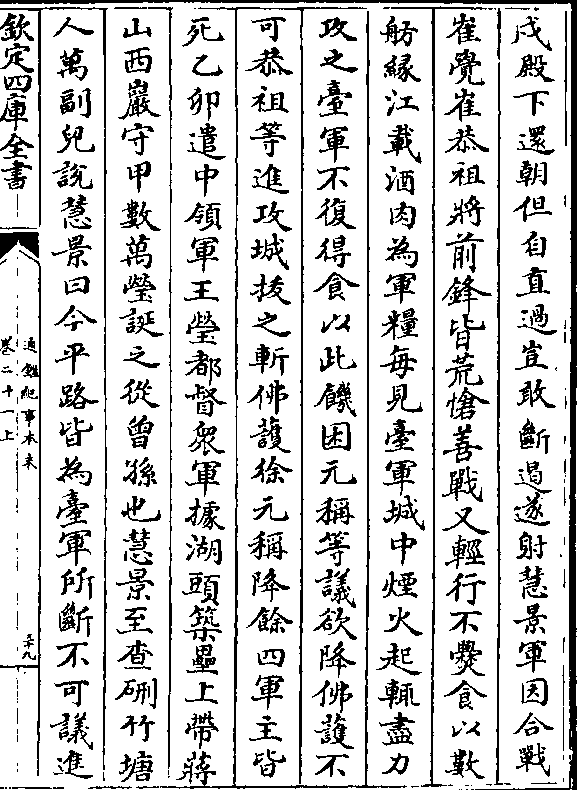 戍殿下還朝但自直過豈敢斷遏遂射慧景軍因合戰
崔覺崔恭祖將前鋒皆荒愴善戰又輕行不㸑食以數
舫緣江載酒肉為軍糧每見臺軍城中煙火起輒盡力
攻之臺軍不復得食以此饑困元稱等議欲降佛䕶不
可恭祖等進攻城拔之斬佛䕶徐元稱降餘四軍主皆
死乙卯遣中領軍王瑩都督衆軍據湖頭築壘上帶蔣
山西巖守甲數萬瑩誕之從曾孫也慧景至查硎竹塘
人萬副兒說慧景曰今平路皆為臺軍所斷不可議進
欽定四庫全書
通鑑紀事本末
卷二十一上
三十九